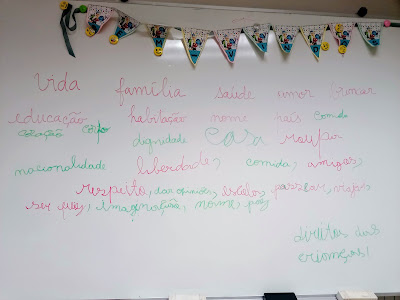 Vida família saúde amor brincar
educação habitação nome pais comida
coração corpo dignidade casa roupa
nacionalidade liberdade, comida, amigos,
respeito, dar opiniões, escola, passear, viajar
ser feliz, imaginação, nome, paz
direitos das
crianças!